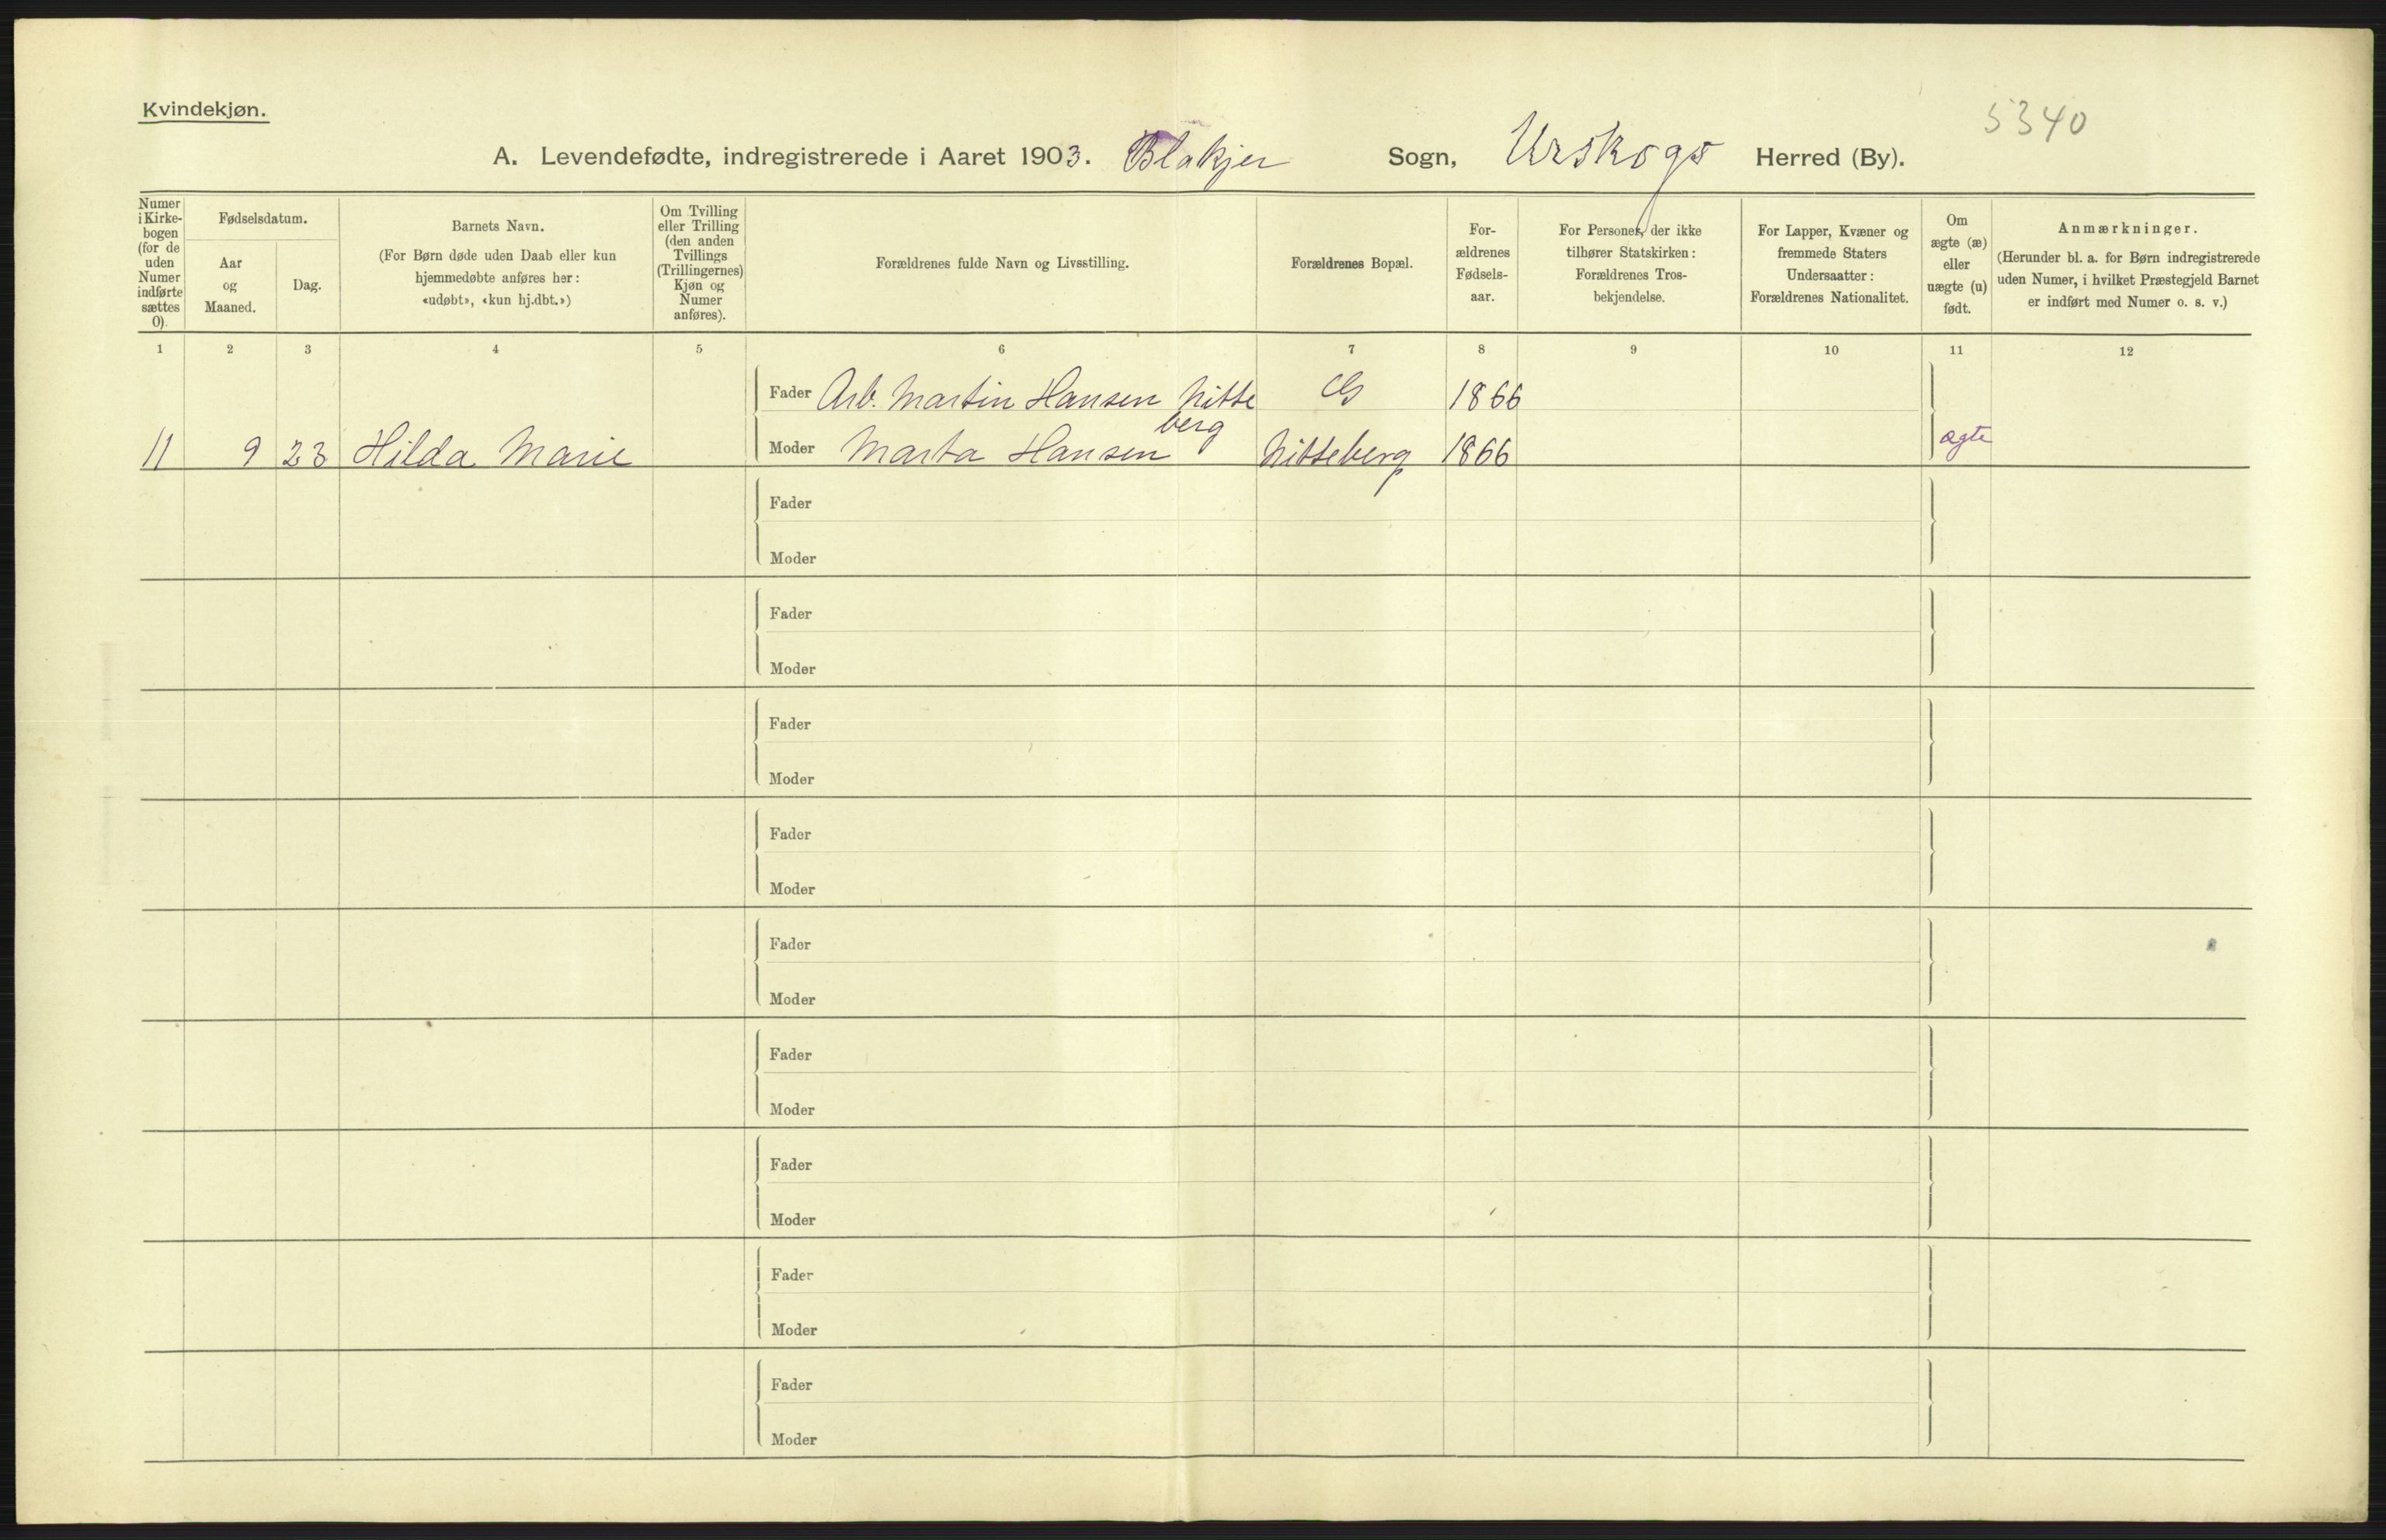 Kvindekjøn.
5340
A. Levendefødte, indregistrerede i Aaret 1903. Blakjer Sogn, Urskogs Herred (By).
Numer i Kirkebogen (for de uden Numer indførte sættes 0).
Fødselsdatum.
Aar og Maaned.
Dag.
Barnets Navn.
(For Børn døde uden Daab eller kun
hjemmedøbte anføres her:
«udøbt», «kun hj.dbt.»)
Om Tvilling
eller Trilling
(den anden
Tvillings
(Trillingernes)
Kjøn og
Numer
anføres).
Forældrenes fulde Navn og Livsstilling.
Forældrenes Bopæl.
For-
ældrenes
Fødsels-
aar.
For Personer, der ikke
tilhører Statskirken:
Forældrenes Tros-
bekjendelse.
For Lapper, Kvæner og
fremmede Staters
Undersaatter:
Forældrenes Nationalitet.
Om
ægte (æ)
eller
uægte (u)
født.
Anmærkninger.
(Herunder bl. a. for Børn indregistrerede
uden Numer, i hvilket Præstegjeld Barnet
er indført med Numer o. s. v.)
1 2 3 4 5 6 7 8 9 10 11 12
Fader Arb. Martin Hansen Nitte 1866
berg
11 9 23 Hilda Marie Moder Marta Hansen Nitteberg 1866 ægte
Fader
Moder
Fader
Moder
Fader
Moder
Fader
Moder
Fader
Moder
Fader
Moder
Fader
Moder
Fader
Moder
Fader
Moder